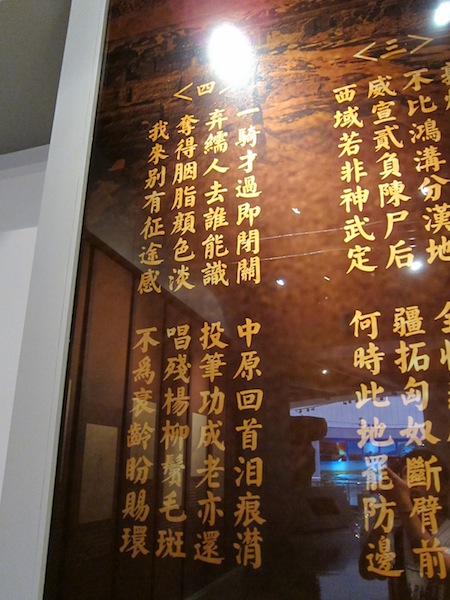 <三>
不比鴻溝分漢地
威宣貳負陳尸后 疆拓匈奴斷臂前
西域若非神武定 何時此地罷防邊
<四>
一騎才過即閉關 中原回首泪痕潸
弃繻人去誰能識 投筆功成老亦還
奪得胭脂顔色淡 唱殘楊柳鬢毛斑
我來别有征途感 不爲衰齡盼賜環